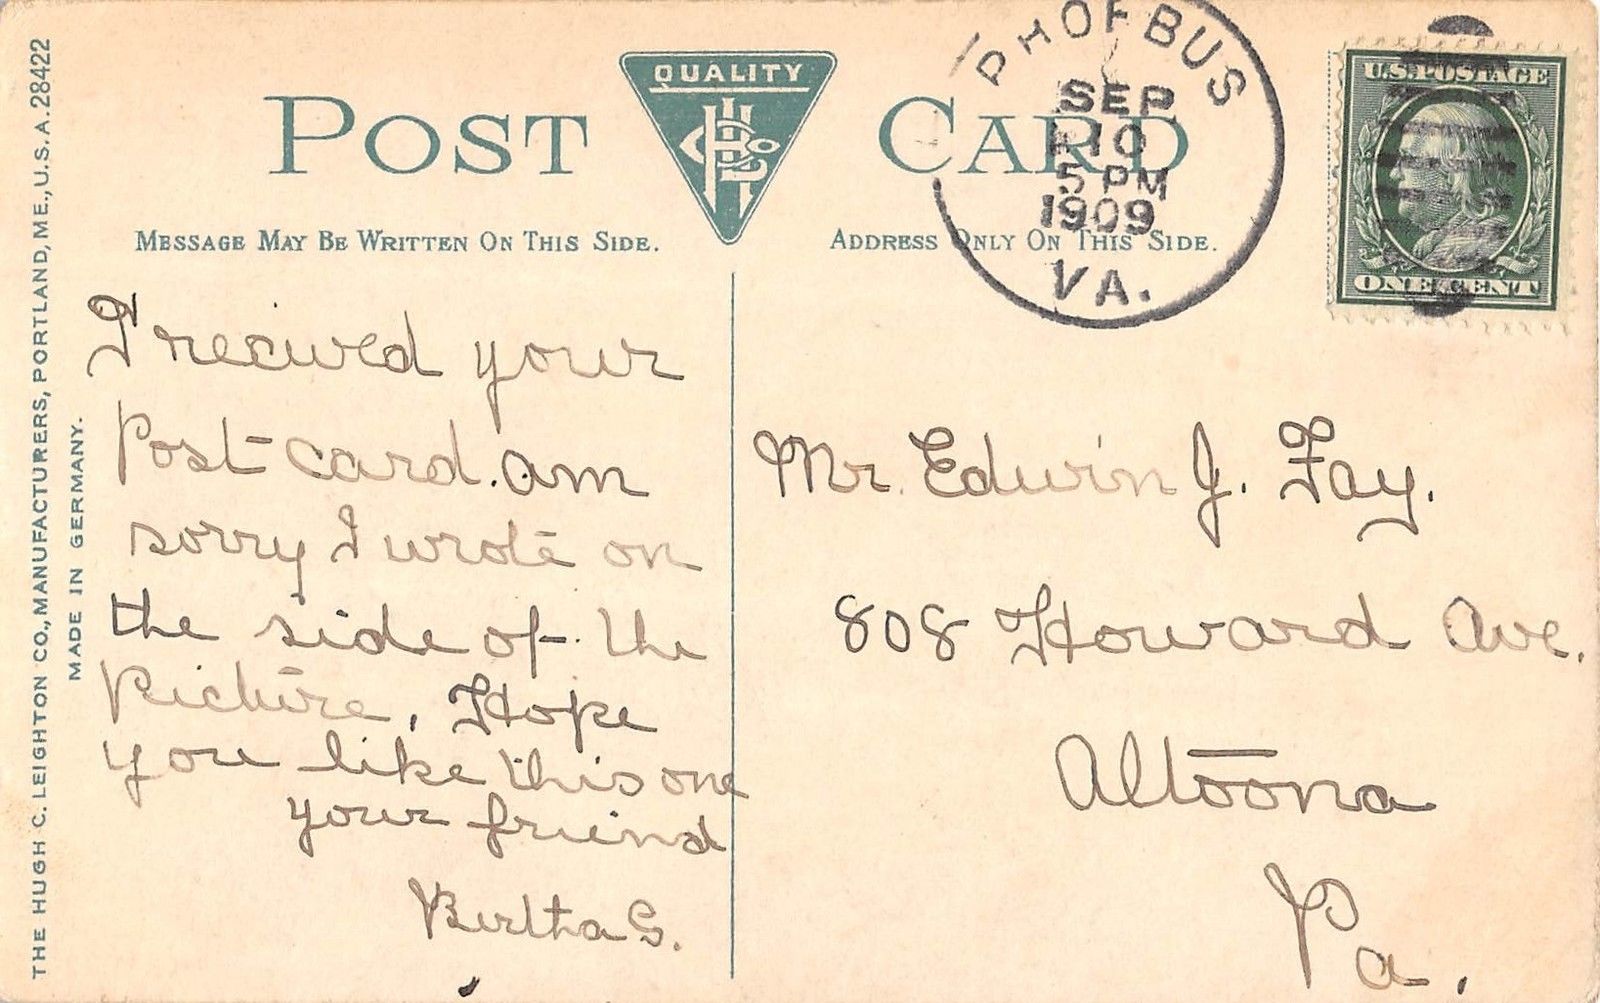 THE HUGH C. LEIGHTON CO., MANUFACTURERS, PORTLAND, ME., U.S.A. 28422
MADE IN GERMANY.
POST CARD
QUALITY
MESSAGE MAY BE WRITTEN ON THIS SIDE.
ADDRESS ONLY ON THIS SIDE.
PHOEBUS
SEP
10
5 PM
1909
VA.
U.S. POSTAGE
ONE CENT
I recived your
Post card. am
sorry I wrote on
the side of the
Picture, Hope
you like this one
your friend
Bertha S.
Mr. Edwin J. Fay.
808 Howard Ave.
Altoona
Pa.